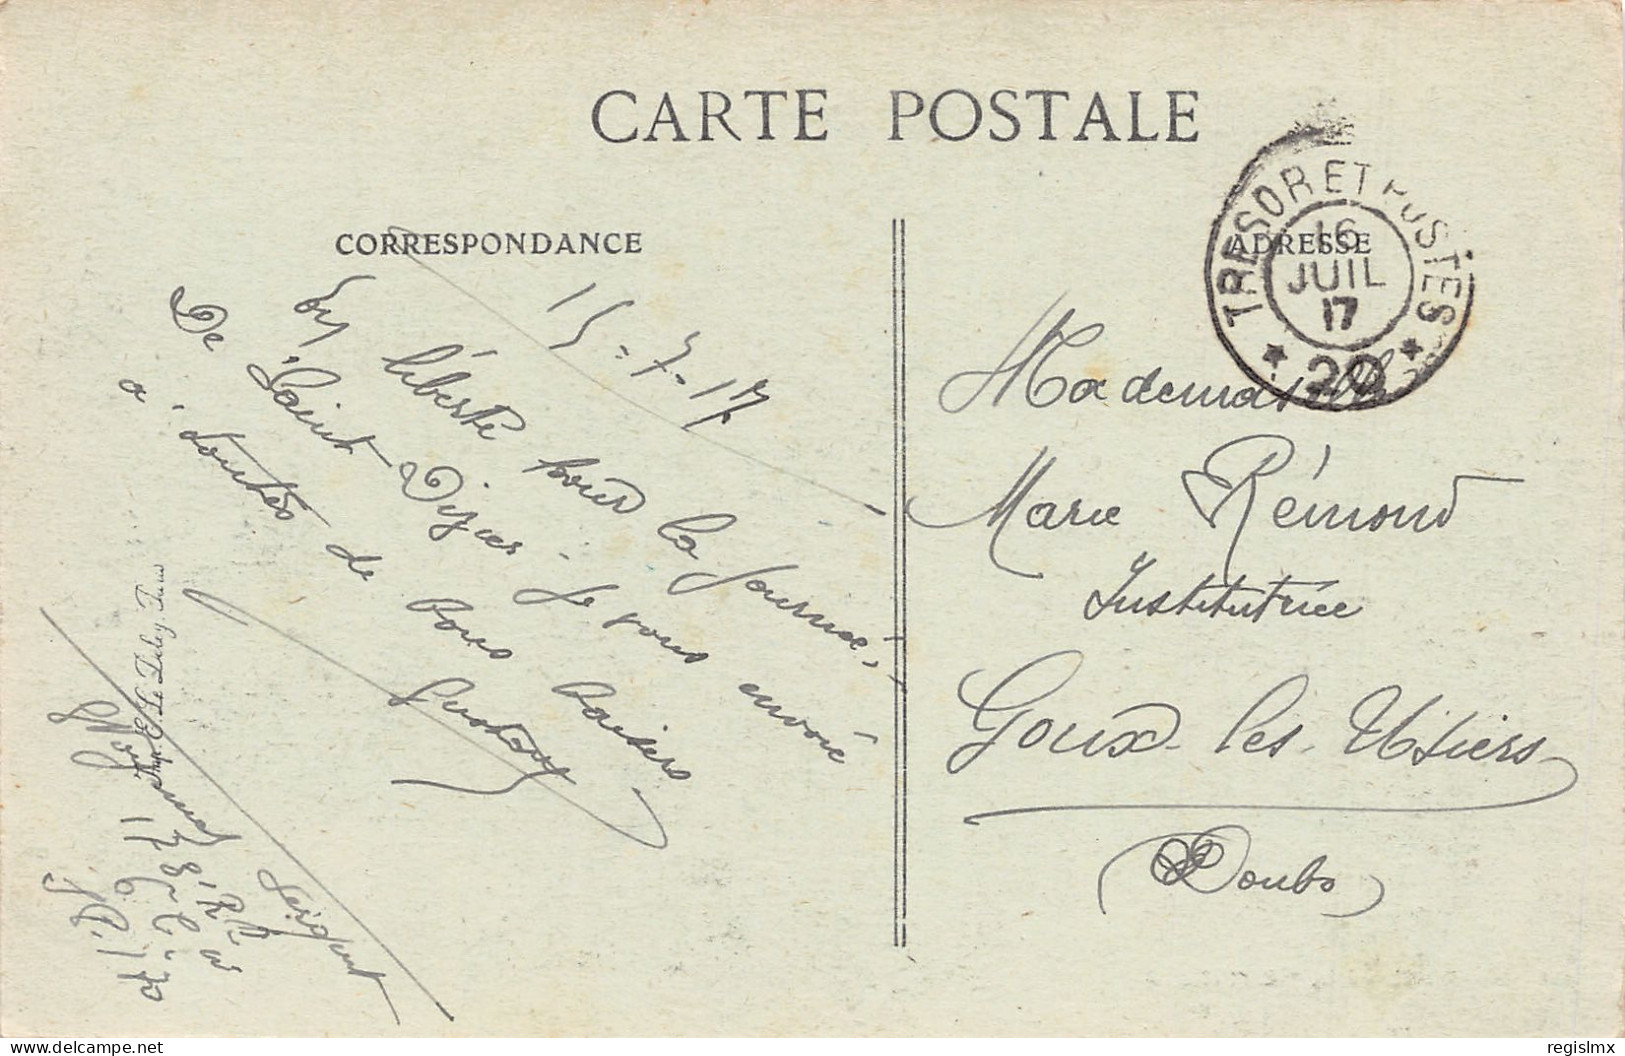 CARTE POSTALE
CORRESPONDANCE
ADRESSE
TRESOR ET POSTES
16
JUIL
17
* 20 *
15-7-17
En liberté pour la journée,
De Saint-Dizier. Je vous envoie
à toutes de bons baisers
Gustave
Sergent
Imp. E. Le Deley, Paris
Mademoiselle
Marie Rémond
Institutrice
Goux-les-Usiers
Doubs
delcampe.net
regislmx